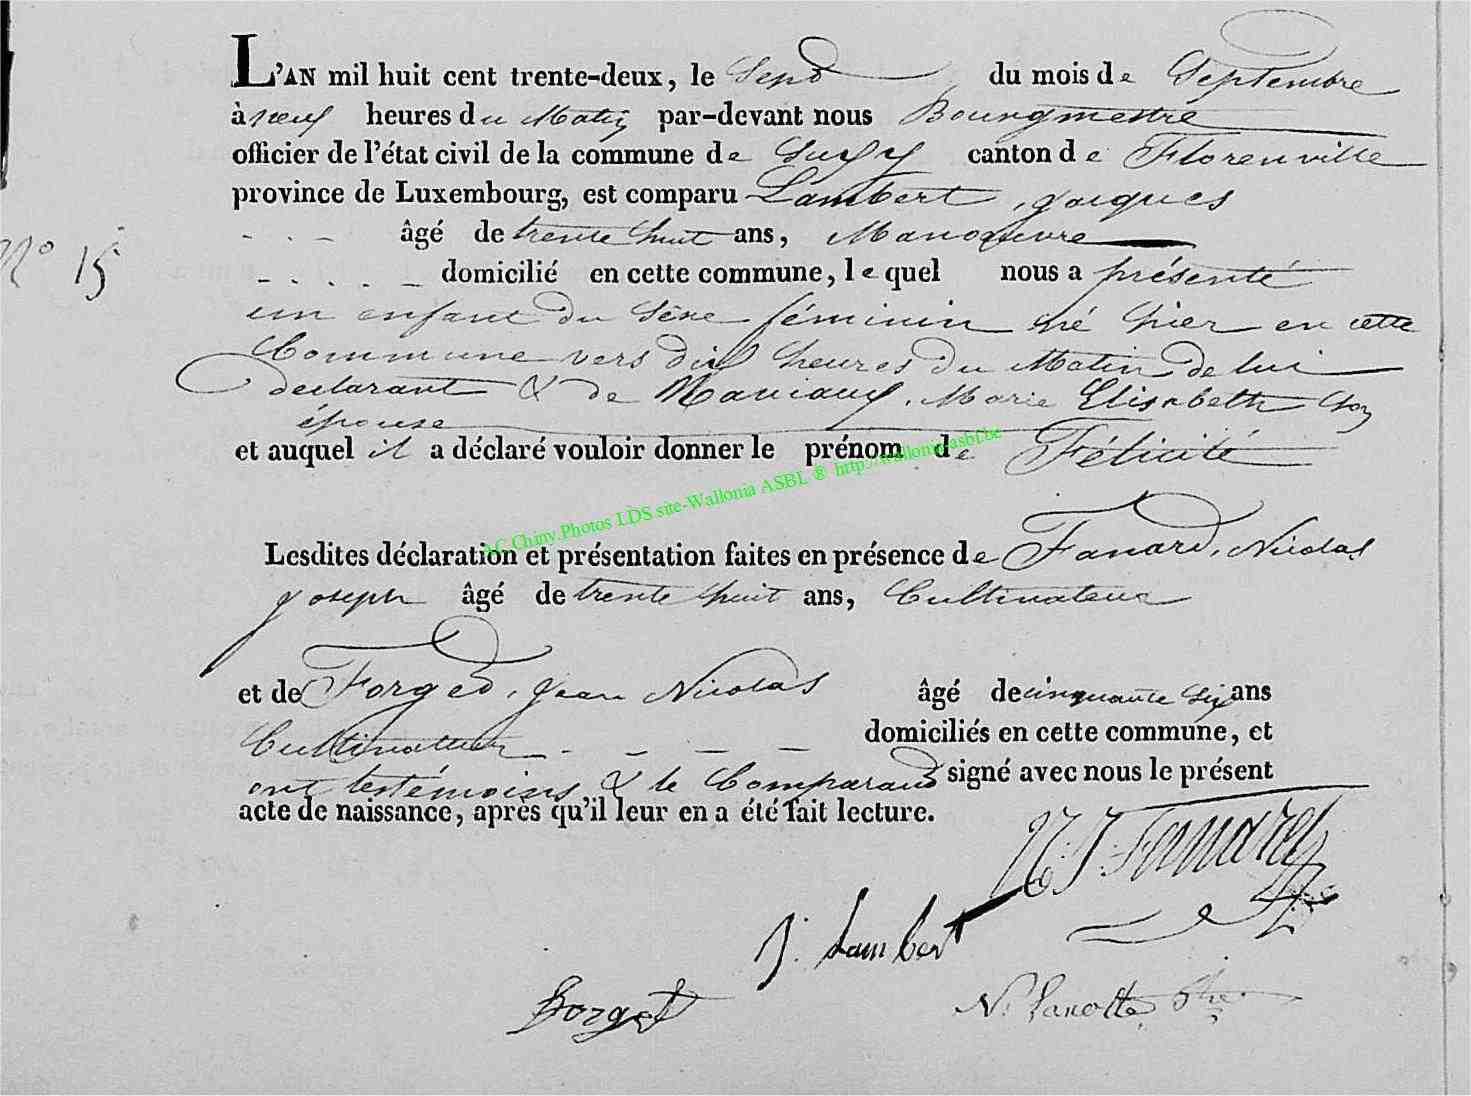 L'AN mil huit cent trente-deux, le Sept du mois de Septembre
à neuf heures du Matin par-devant nous Bourgmestre
officier de l'état civil de la commune de Suxy canton de Florenville
province de Luxembourg, est comparu Lambert, Jacques
âgé de trente huit ans, Manoeuvre
N° 15 domicilié en cette commune, lequel nous a présenté
un enfant du Sexe féminin né hier en cette
Commune vers dix heures du Matin de lui
déclarant & de Maniaux, Marie Elisabeth Son
épouse
et auquel il a déclaré vouloir donner le prénom de Félicité
A.C.Chiny.Photos LDS site-Wallonia ASBL ® http://wallonia-asbl.be
Lesdites déclaration et présentation faites en présence de Fanard, Nicolas
Joseph âgé de trente huit ans, Cultivateur
et de Forget, Jean Nicolas âgé de cinquante Six ans
Cultivateur domiciliés en cette commune, et
ont les témoins & le Comparant signé avec nous le présent
acte de naissance, après qu'il leur en a été fait lecture.
N: J: Fanard
J. Lambert
Forget
N. Lanotte